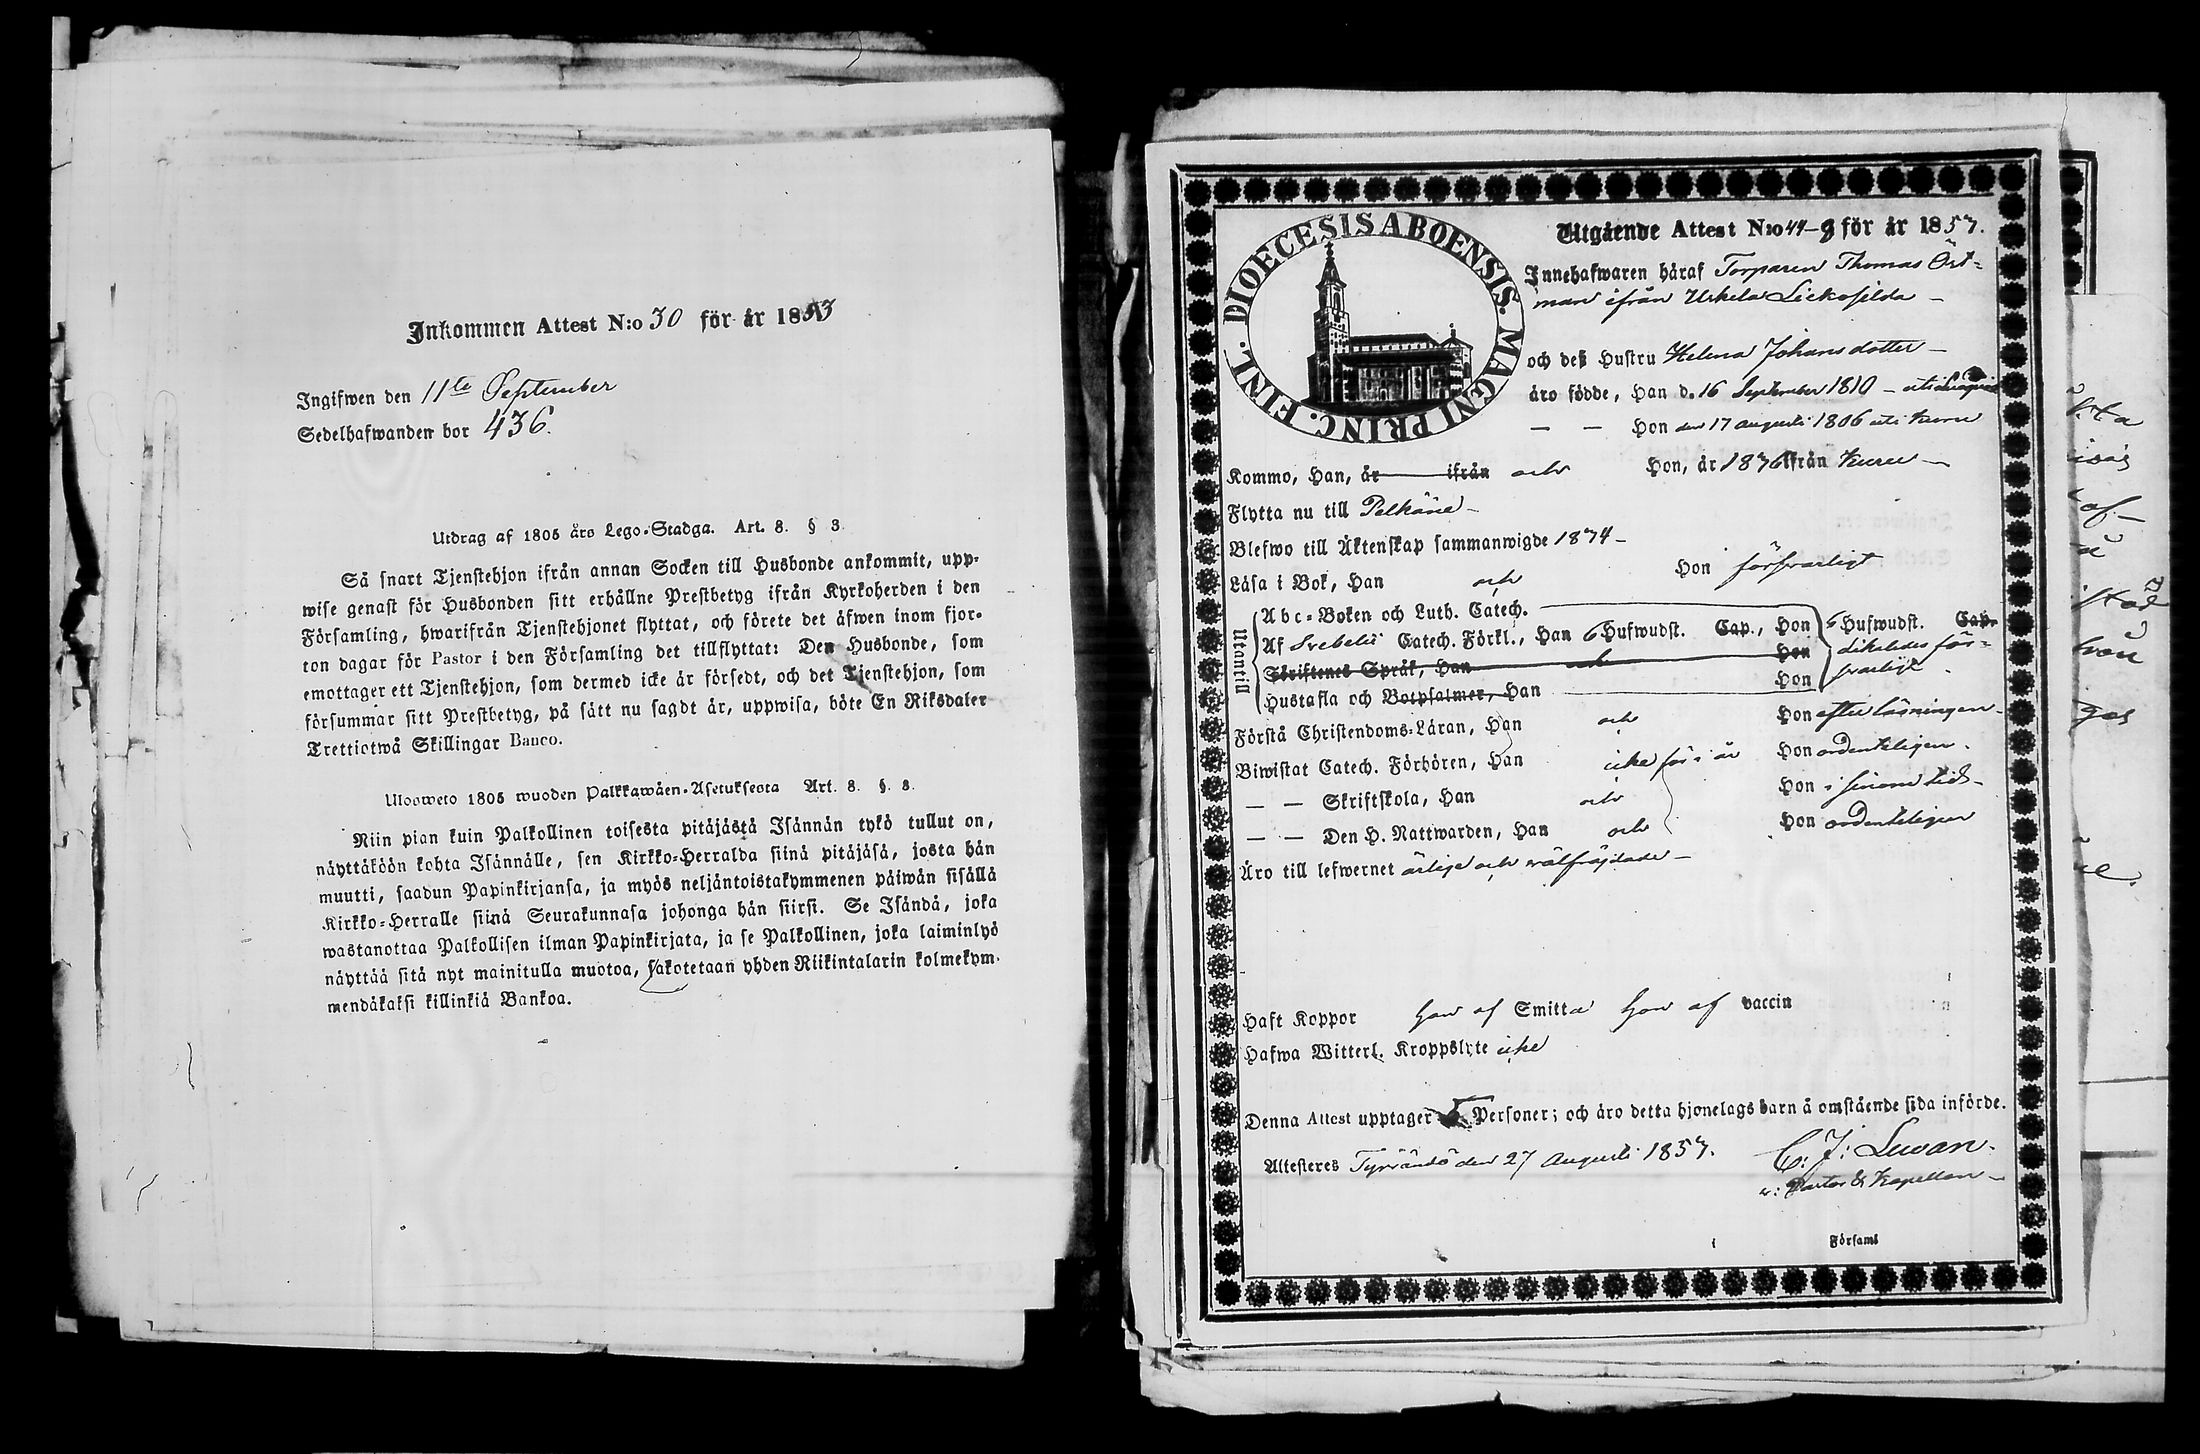 Inkommen Attest N:o 30 för år 1853
Ingifwen den 11te September
Sedelhafwanden bor 436.
Utdrag af 1805 års Lego-Stadga. Art. 8. § 3.
Så snart Tjenstehjon ifrån annan Socken till Husbonde ankommit, upp-
wise genast för Husbonden sitt erhållne Prestbetyg ifrån Kyrkoherden i den
Församling, hwarifrån Tjenstehjonet flyttat, och förete det äfwen inom fjor-
ton dagar för Pastor i den Församling det tillflyttat: Den Husbonde, som
emottager ett Tjenstehjon, som dermed icke är försedt, och det Tjenstehjon, som
försummar sitt Prestbetyg, på sätt nu sagdt är, uppwisa, böte En Riksdaler
Trettiotwå Skillingar Banco.
Ulosweto 1805 wuoden Palkkawäen-Asetuksesta Art. 8. §. 3.
Niin pian kuin Palkollinen toisesta pitäjästä Isännän tykö tullut on,
näyttäköön kohta Isännälle, sen Kirkko-Herralda siinä pitäjäsä, josta hän
muutti, saadun Papinkirjansa, ja myös neljäntoistakymmenen päiwän sisällä
Kirkko-Herralle siinä Seurakunnasa johonga hän siirsi. Se Isändä, joka
wastanottaa Palkollisen ilman Papinkirjata, ja se Palkollinen, joka laiminlyö
näyttää sitä nyt mainitulla muotoa, sakotetaan yhden Riikintalarin kolmekym-
mendäkaksi killinkiä Bankoa.
DIOECESIS ABOENSIS. MAGNI PRINC. FINL.
Utgående Attest N:o 44-8 för år 1857.
Innehafwaren häraf Torparen Thomas Öst-
man ifrån Uskela Lickosilda
och deß Hustru Helena Johansdotter
äro födde, Han d. 16 September 1810 – uti
— — Hon den 17 augusti 1806 uti Kuru
Kommo, Han, år ifrån och Hon, år 1836 ifrån Kuru
Flytta nu till Pelkäne
Blefwo till Äktenskap sammanwigde 1834
Läsa i Bok, Han och Hon försvarligt
Utantill
Abc-Boken och Luth. Catech.
Af Svebelii Catech. Förkl., Han 6 Hufwudst. Cap., Hon 6 Hufwudst. Cap.
Skriftenes Språk, Han och Hon likeledes för-
Hustafla och Botpsalmer, Han Hon svarligt
Förstå Christendoms-Läran, Han och Hon efter läsningen
Biwistat Catech. Förhören, Han icke för i år Hon ordenteligen.
— — Skriftskola, Han och Hon i sinom tid
— — Den H. Nattwarden, Han och Hon ordenteligen
Äro till lefwernet ärlige och wälfräjdade
Haft Koppor han af Smitta hon af vaccin
Hafwa Witterl. Kroppslyte icke
Denna Attest upptager 5 Personer; och äro detta hjonelags barn å omstående sida införde.
Attesteres Tyrväntö den 27 Augusti 1857.
v: Pastor & Kapellan
Församl